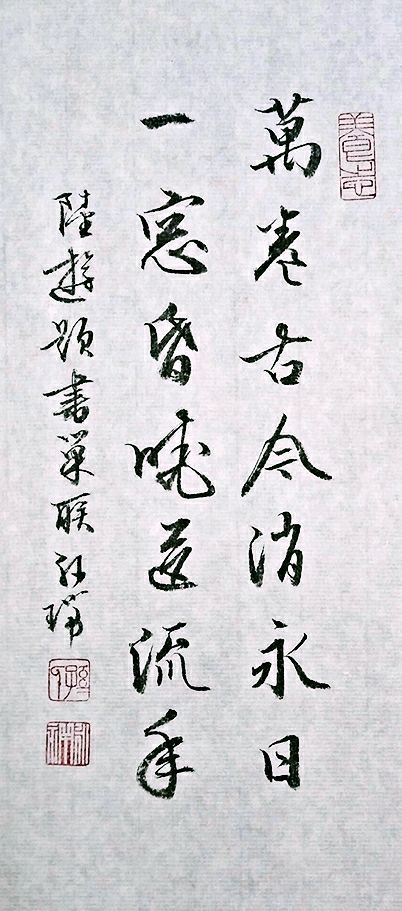 萬卷古今消永日
一窗昏曉送流年
陸遊題書巢聯